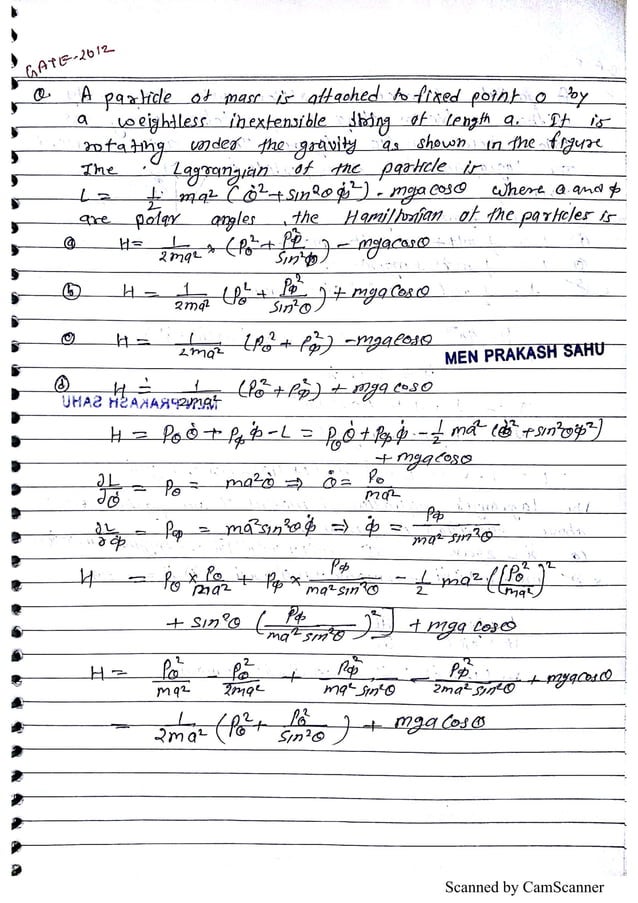 GATE-2012
Q. A particle of mass is attached to fixed point O by
a weightless inextensible string of length a. It is
rotating under the gravity as shown in the figure
The Lagrangian of the particle is
L = 1/2 ma² (θ̇² + sin²θ φ̇²) - mga cosθ where θ and φ
are polar angles, the Hamiltonian of the particles is
(a) H = 1/2ma² × (Pθ² + Pφ²/sin²φ) - mga cosθ
(b) H = 1/2ma² (Pθ² + Pφ²/sin²θ) + mga cosθ
(c) H = 1/2ma² (Pθ² + Pφ²) - mga cosθ
MEN PRAKASH SAHU
(d) H = 1/2ma² (Pθ² + Pφ²) + mga cosθ
H = Pθ θ̇ + Pφ φ̇ - L = Pθ θ̇ + Pφ φ̇ - 1/2 ma² (θ̇² + sin²θ φ̇²)
+ mga cosθ
∂L/∂θ̇ = Pθ = ma²θ̇ ⇒ θ̇ = Pθ/ma²
∂L/∂φ̇ = Pφ = ma² sin²θ φ̇ ⇒ φ̇ = Pφ/ma² sin²θ
H = Pθ × Pθ/ma² + Pφ × Pφ/ma² sin²θ - 1/2 ma² ((Pθ²/ma²)²
+ sin²θ (Pφ/ma² sin²θ)²] + mga cosθ
H = Pθ²/ma² - Pθ²/2ma² + Pφ²/ma² sin²θ - Pφ²/2ma² sin²θ + mga cosθ
= 1/2ma² (Pθ² + Pθ²/sin²θ) + mga cosθ
Scanned by CamScanner